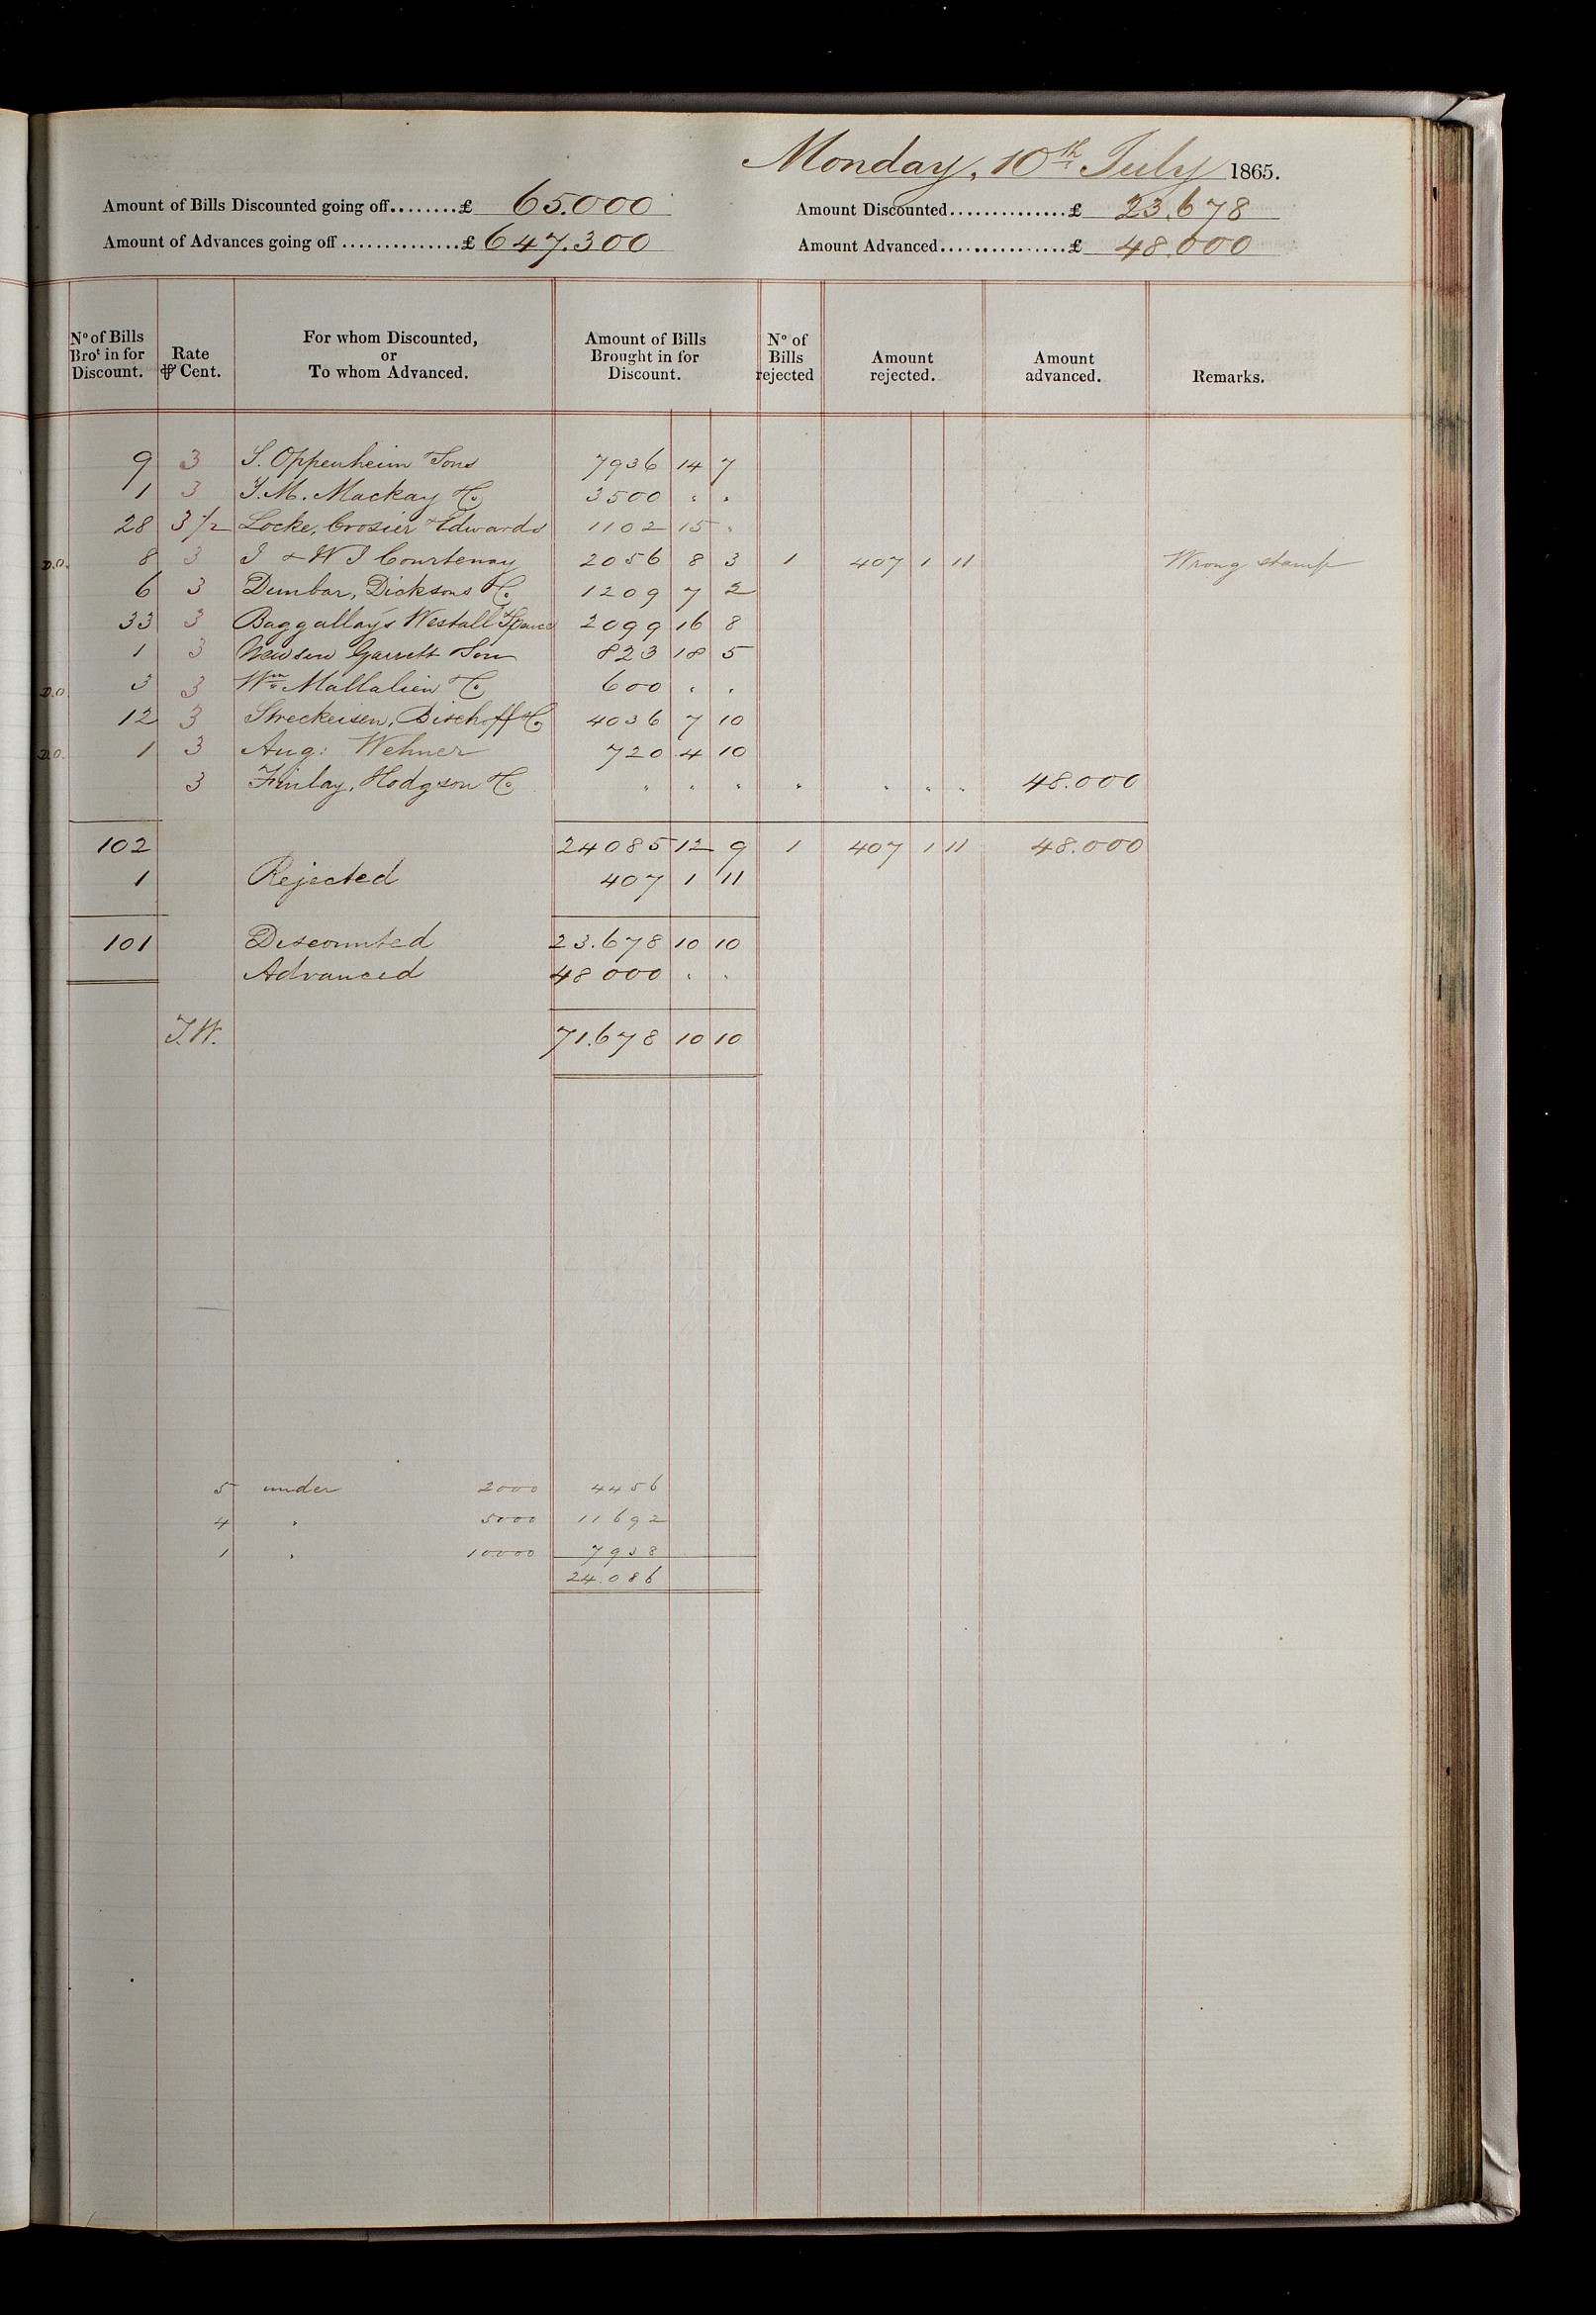 Monday, 10th July 1865.
Amount of Bills Discounted going off........£ 65.000 Amount Discounted..............£ 23.678
Amount of Advances going off..............£ 647.300 Amount Advanced...............£ 48.000
No of Bills Brot in for Discount. Rate ⅌ Cent. For whom Discounted, or To whom Advanced. Amount of Bills Brought in for Discount. No of Bills rejected Amount rejected. Amount advanced. Remarks.
9 3 S. Oppenheim & Sons 7936 14 7
1 3 J. M. Mackay & Co. 3500 " "
28 3 1/2 Locke, Crosier & Edwards 1102 15 "
D.O. 8 3 J & W J Courtenay 2056 8 3 1 407 1 11 Wrong stamp
6 3 Dunbar, Dicksons & Co. 1209 7 2
33 3 Baggallays Westall & Spence 2099 16 8
1 3 Newson Garrett & Son 823 18 5
D.O. 3 3 Wm. Mallalieu & Co. 600 " "
12 3 Streckeisen, Bischoff & Co. 4036 7 10
D.O. 1 3 Aug: Wehner 720 4 10
3 Finlay, Hodgson & Co. " " " " " " " 48.000
102 24085 12 9 1 407 1 11 48.000
1 Rejected 407 1 11
101 Discounted 23.678 10 10
Advanced 48000 " "
J.W. 71.678 10 10
5 under 2000 4456
4 " 5000 11692
1 " 10000 7938
24.086